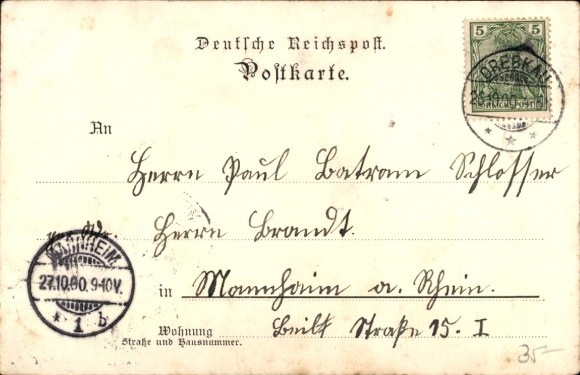 Deutsche Reichspost.
Postkarte.
5
DREBKAU
REICHSPOST
An
Herrn Paul Batram Schlosser
Herrn Brandt.
MANNHEIM.
27.10.00. 9-10V.
* 1 b
in Mannhaim a. Rhein.
Wohnung
Straße und Hausnummer.
Beilt Straße 15. I
35-